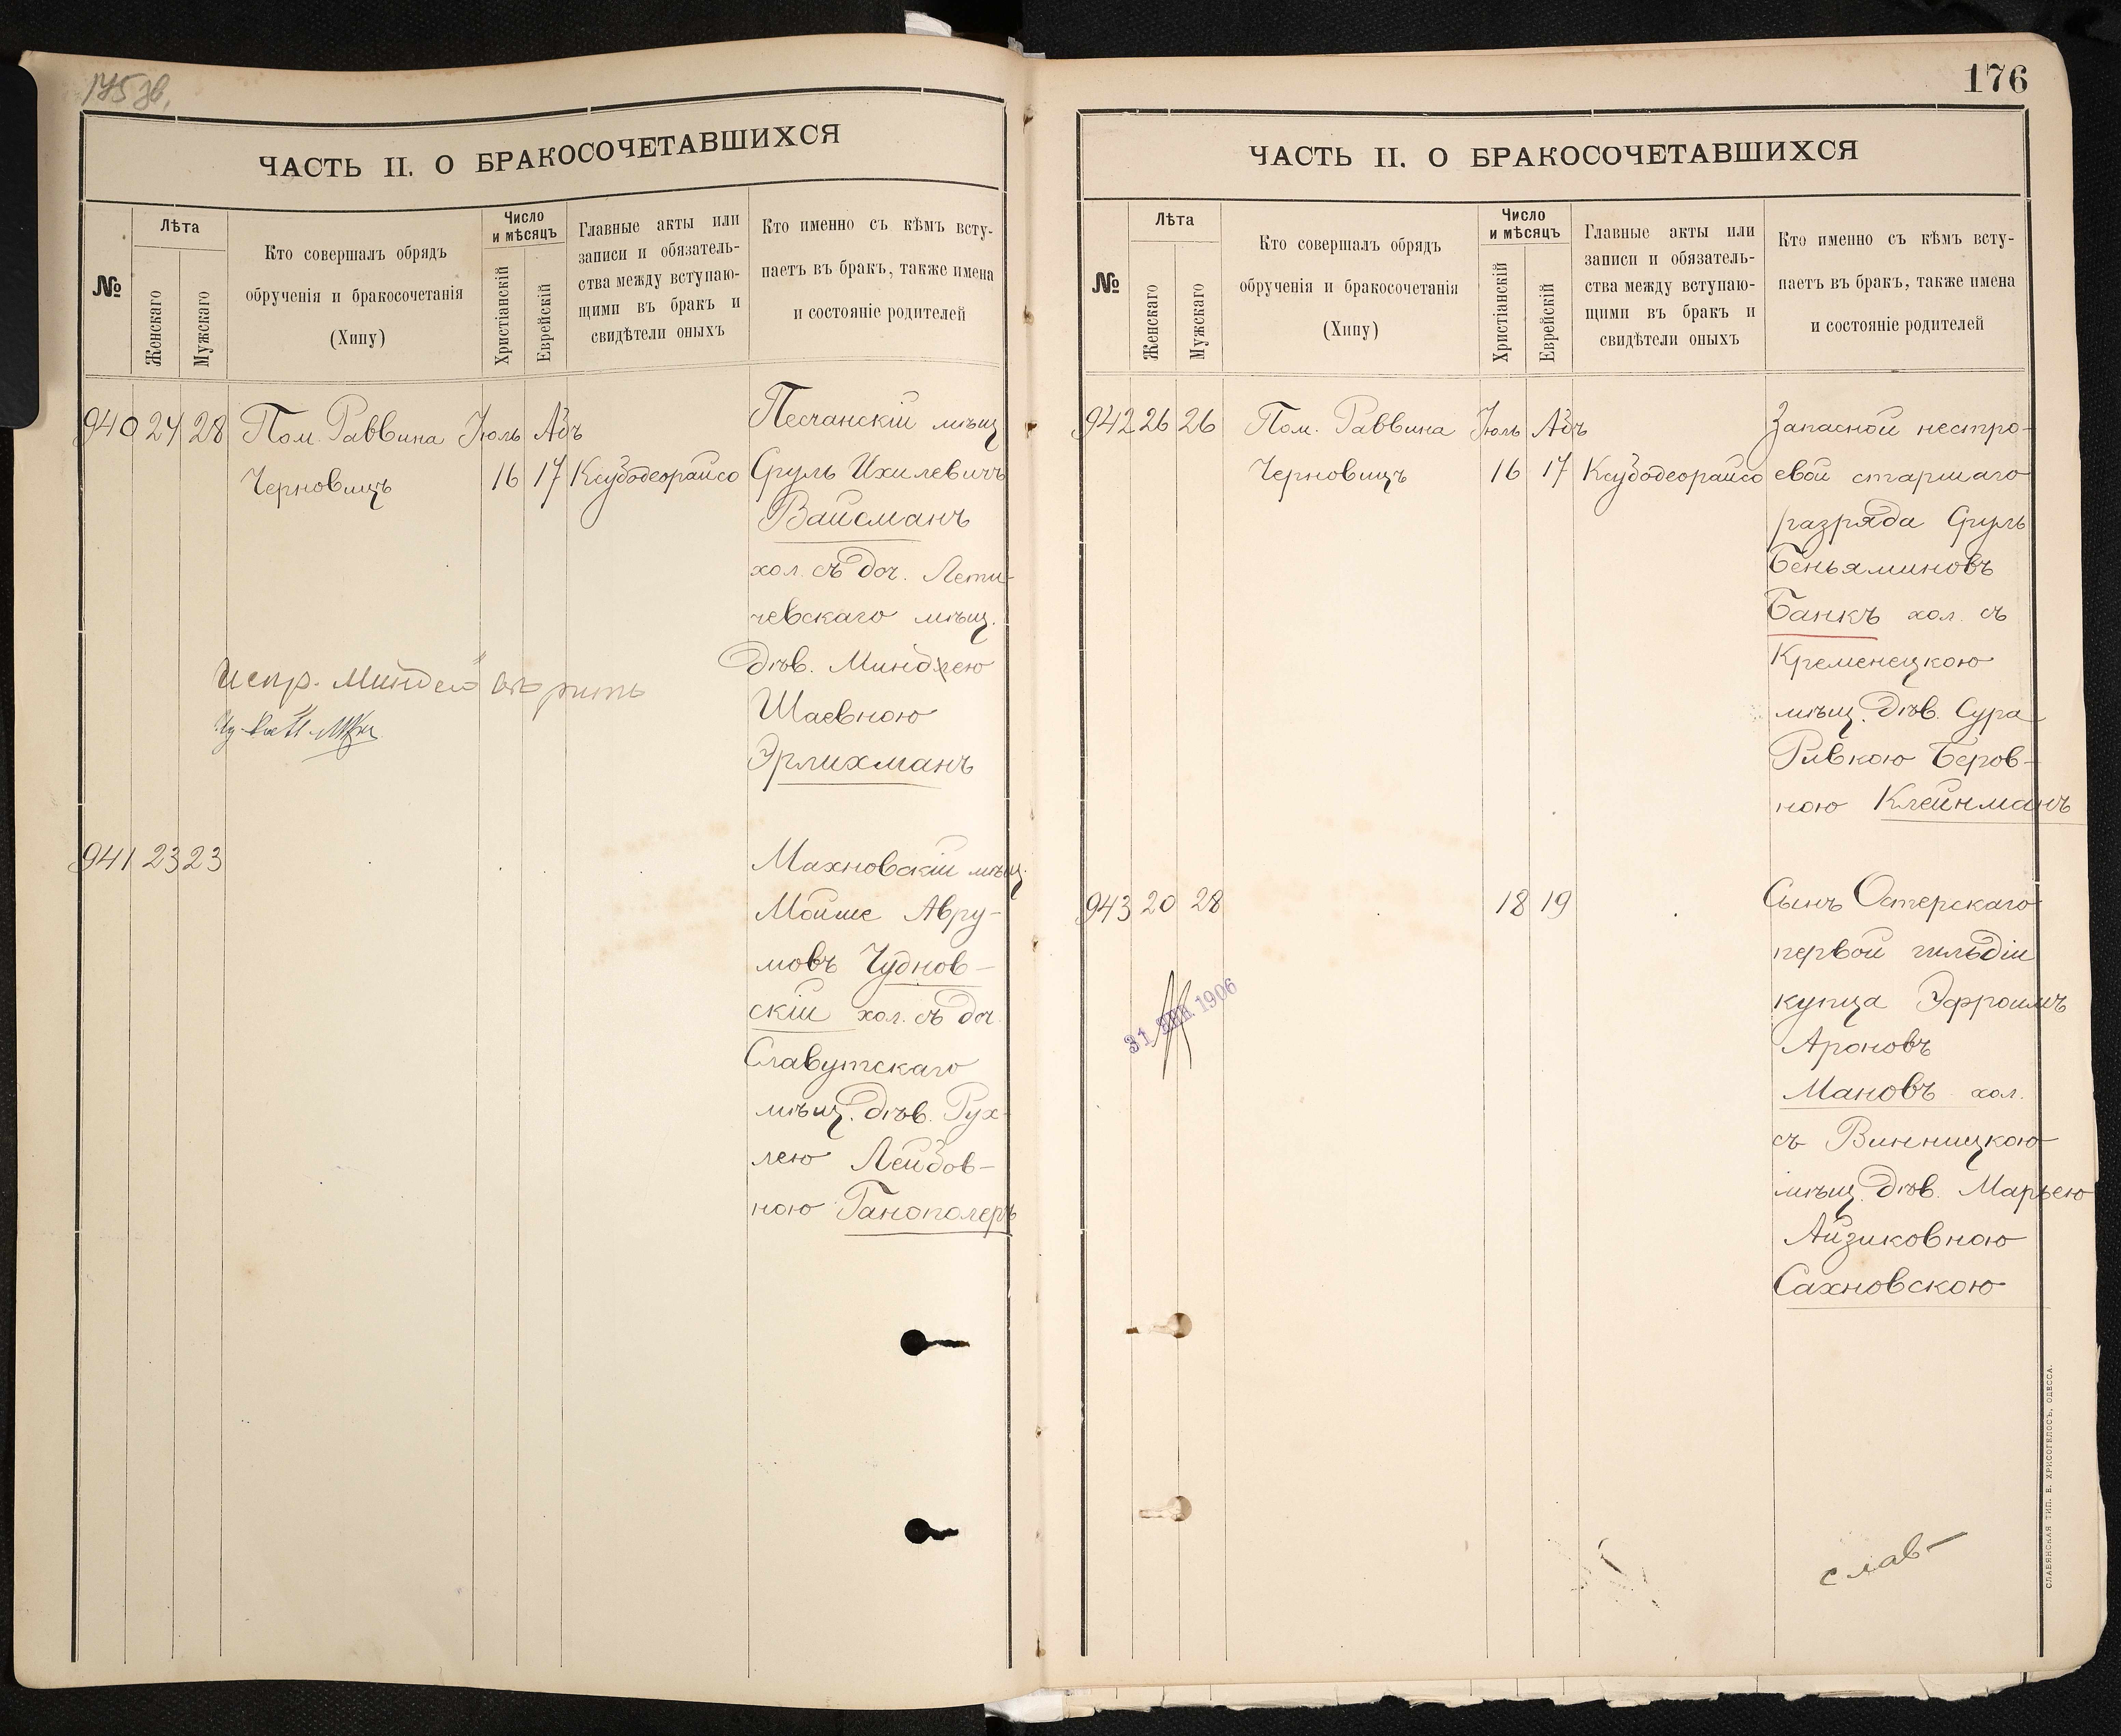 ЧАСТЬ II. О БРАКОСОЧЕТАВШИХСЯ
№
Лѣта
Женскаго
Мужскаго
Кто совершалъ обрядъ
обрученія и бракосочетанія
(Хипу)
Число
и мѣсяцъ
Христіанскій
Еврейскій
Главные акты или
записи и обязатель-
ства между вступаю-
щими въ бракъ и
свидѣтели оныхъ
Кто именно съ кѣмъ всту-
паетъ въ бракъ, также имена
и состояніе родителей
940 24 28 Пом. Раввина Іюль Абъ Песчанскій мѣщ
Черновицъ 16 17 Ксубодеорайсо Сруль Ихилевичъ
Вайсманъ
хол. съ доч. Лети-
чевскаго мѣщ.
дѣв. Миндлею
Испр. Миндею
Шаевною
Эрлихманъ
941 23 23 Махновскій мѣщ.
Мойше Авру-
мовъ Чуднов-
скій хол. съ доч.
Славутскаго
мѣщ. дѣв. Рух-
лею Лейбов-
ною Ганополеръ
176
ЧАСТЬ II. О БРАКОСОЧЕТАВШИХСЯ
№
Лѣта
Женскаго
Мужскаго
Кто совершалъ обрядъ
обрученія и бракосочетанія
(Хипу)
Число
и мѣсяцъ
Христіанскій
Еврейскій
Главные акты или
записи и обязатель-
ства между вступаю-
щими въ бракъ и
свидѣтели оныхъ
Кто именно съ кѣмъ всту-
паетъ въ бракъ, также имена
и состояніе родителей
942 26 26 Пом. Раввина Іюль Абъ Запасной нестро-
Черновицъ 16 17 Ксубодеорайсо евой старшаго
разряда Сруль
Беньяминовъ
Банкъ хол. съ
Кременецкою
мѣщ. дѣв. Сура
Ривкою Беров-
ною Клейнманъ
943 20 28 18 19 Сынъ Остерскаго
первой гильдіи
купца Эфроимъ
31 1906
Ароновъ
Мановъ хол.
съ Винницкою
мѣщ. дѣв. Марьею
Айзиковною
Сахновскою
слав-
СЛАВЯНСКАЯ ТИП. Е. ХРИСОГЕЛОСЪ, ОДЕССА.